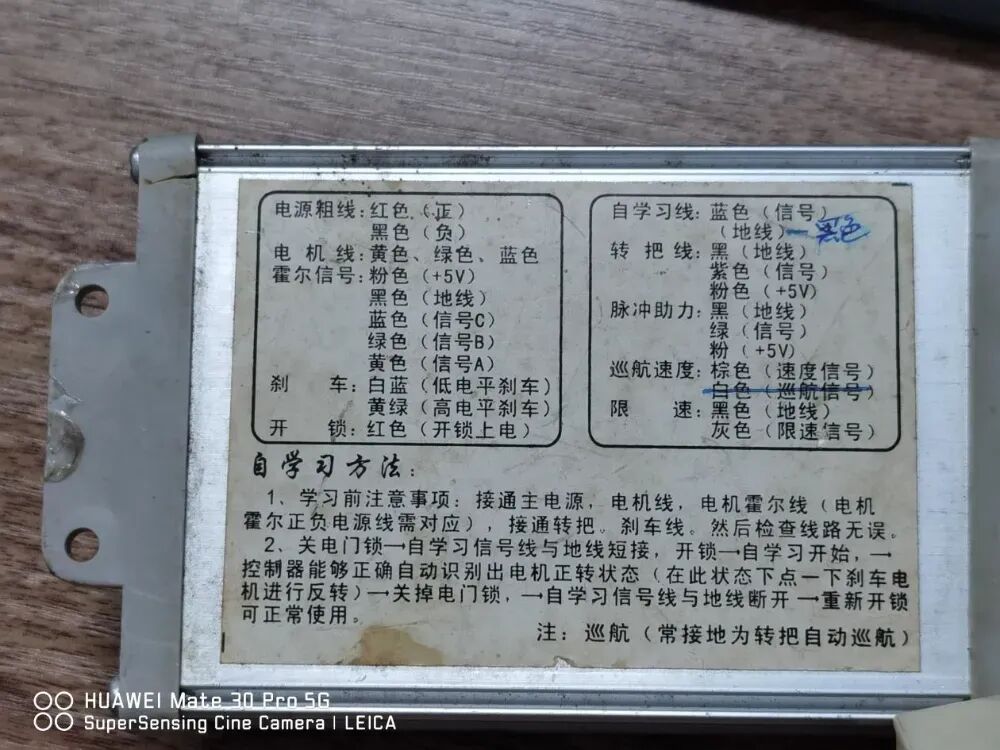 电源粗线:红色(正)
黑色(负)
电机线:黄色、绿色、蓝色
霍尔信号:粉色(+5V)
黑色(地线)
蓝色(信号C)
绿色(信号B)
黄色(信号A)
刹 车:白蓝(低电平刹车)
黄绿(高电平刹车)
开 锁:红色(开锁上电)
自学习线:蓝色(信号)
(地线)—黑色
转把线:黑(地线)
紫色(信号)
粉色(+5V)
脉冲助力:黑(地线)
绿(信号)
粉(+5V)
巡航速度:棕色(速度信号)
白色(巡航信号)
限 速:黑色(地线)
灰色(限速信号)
自学习方法:
1、学习前注意事项:接通主电源,电机线,电机霍尔线(电机
霍尔正负电源线需对应),接通转把。刹车线。然后检查线路无误。
2、关电门锁→自学习信号线与地线短接,开锁→自学习开始,→
控制器能够正确自动识别出电机正转状态(在此状态下点一下刹车电
机进行反转)→关掉电门锁,→自学习信号线与地线断开→重新开锁
可正常使用。
注:巡航(常接地为转把自动巡航)
HUAWEI Mate 30 Pro 5G
SuperSensing Cine Camera | LEICA